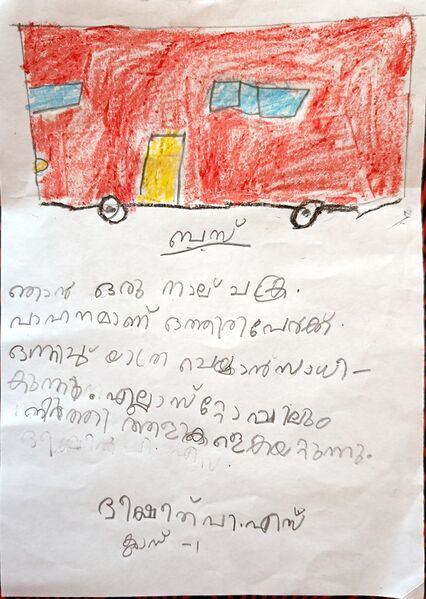 ബസ്
ഞാൻ ഒരു നാല് ചക്ര
വാഹനമാണ് ഒത്തിരിപേർക്ക്
ഒന്നിച്ച് യാത്ര ചെയ്യാൻ സാധി-
ക്കുന്നു. എല്ലാ സ്റ്റോപ്പിലും
നിർത്തി ആളുകളെ കയറ്റുന്നു.
ദീക്ഷിത് പി.എസ്
ക്ലാസ് -1